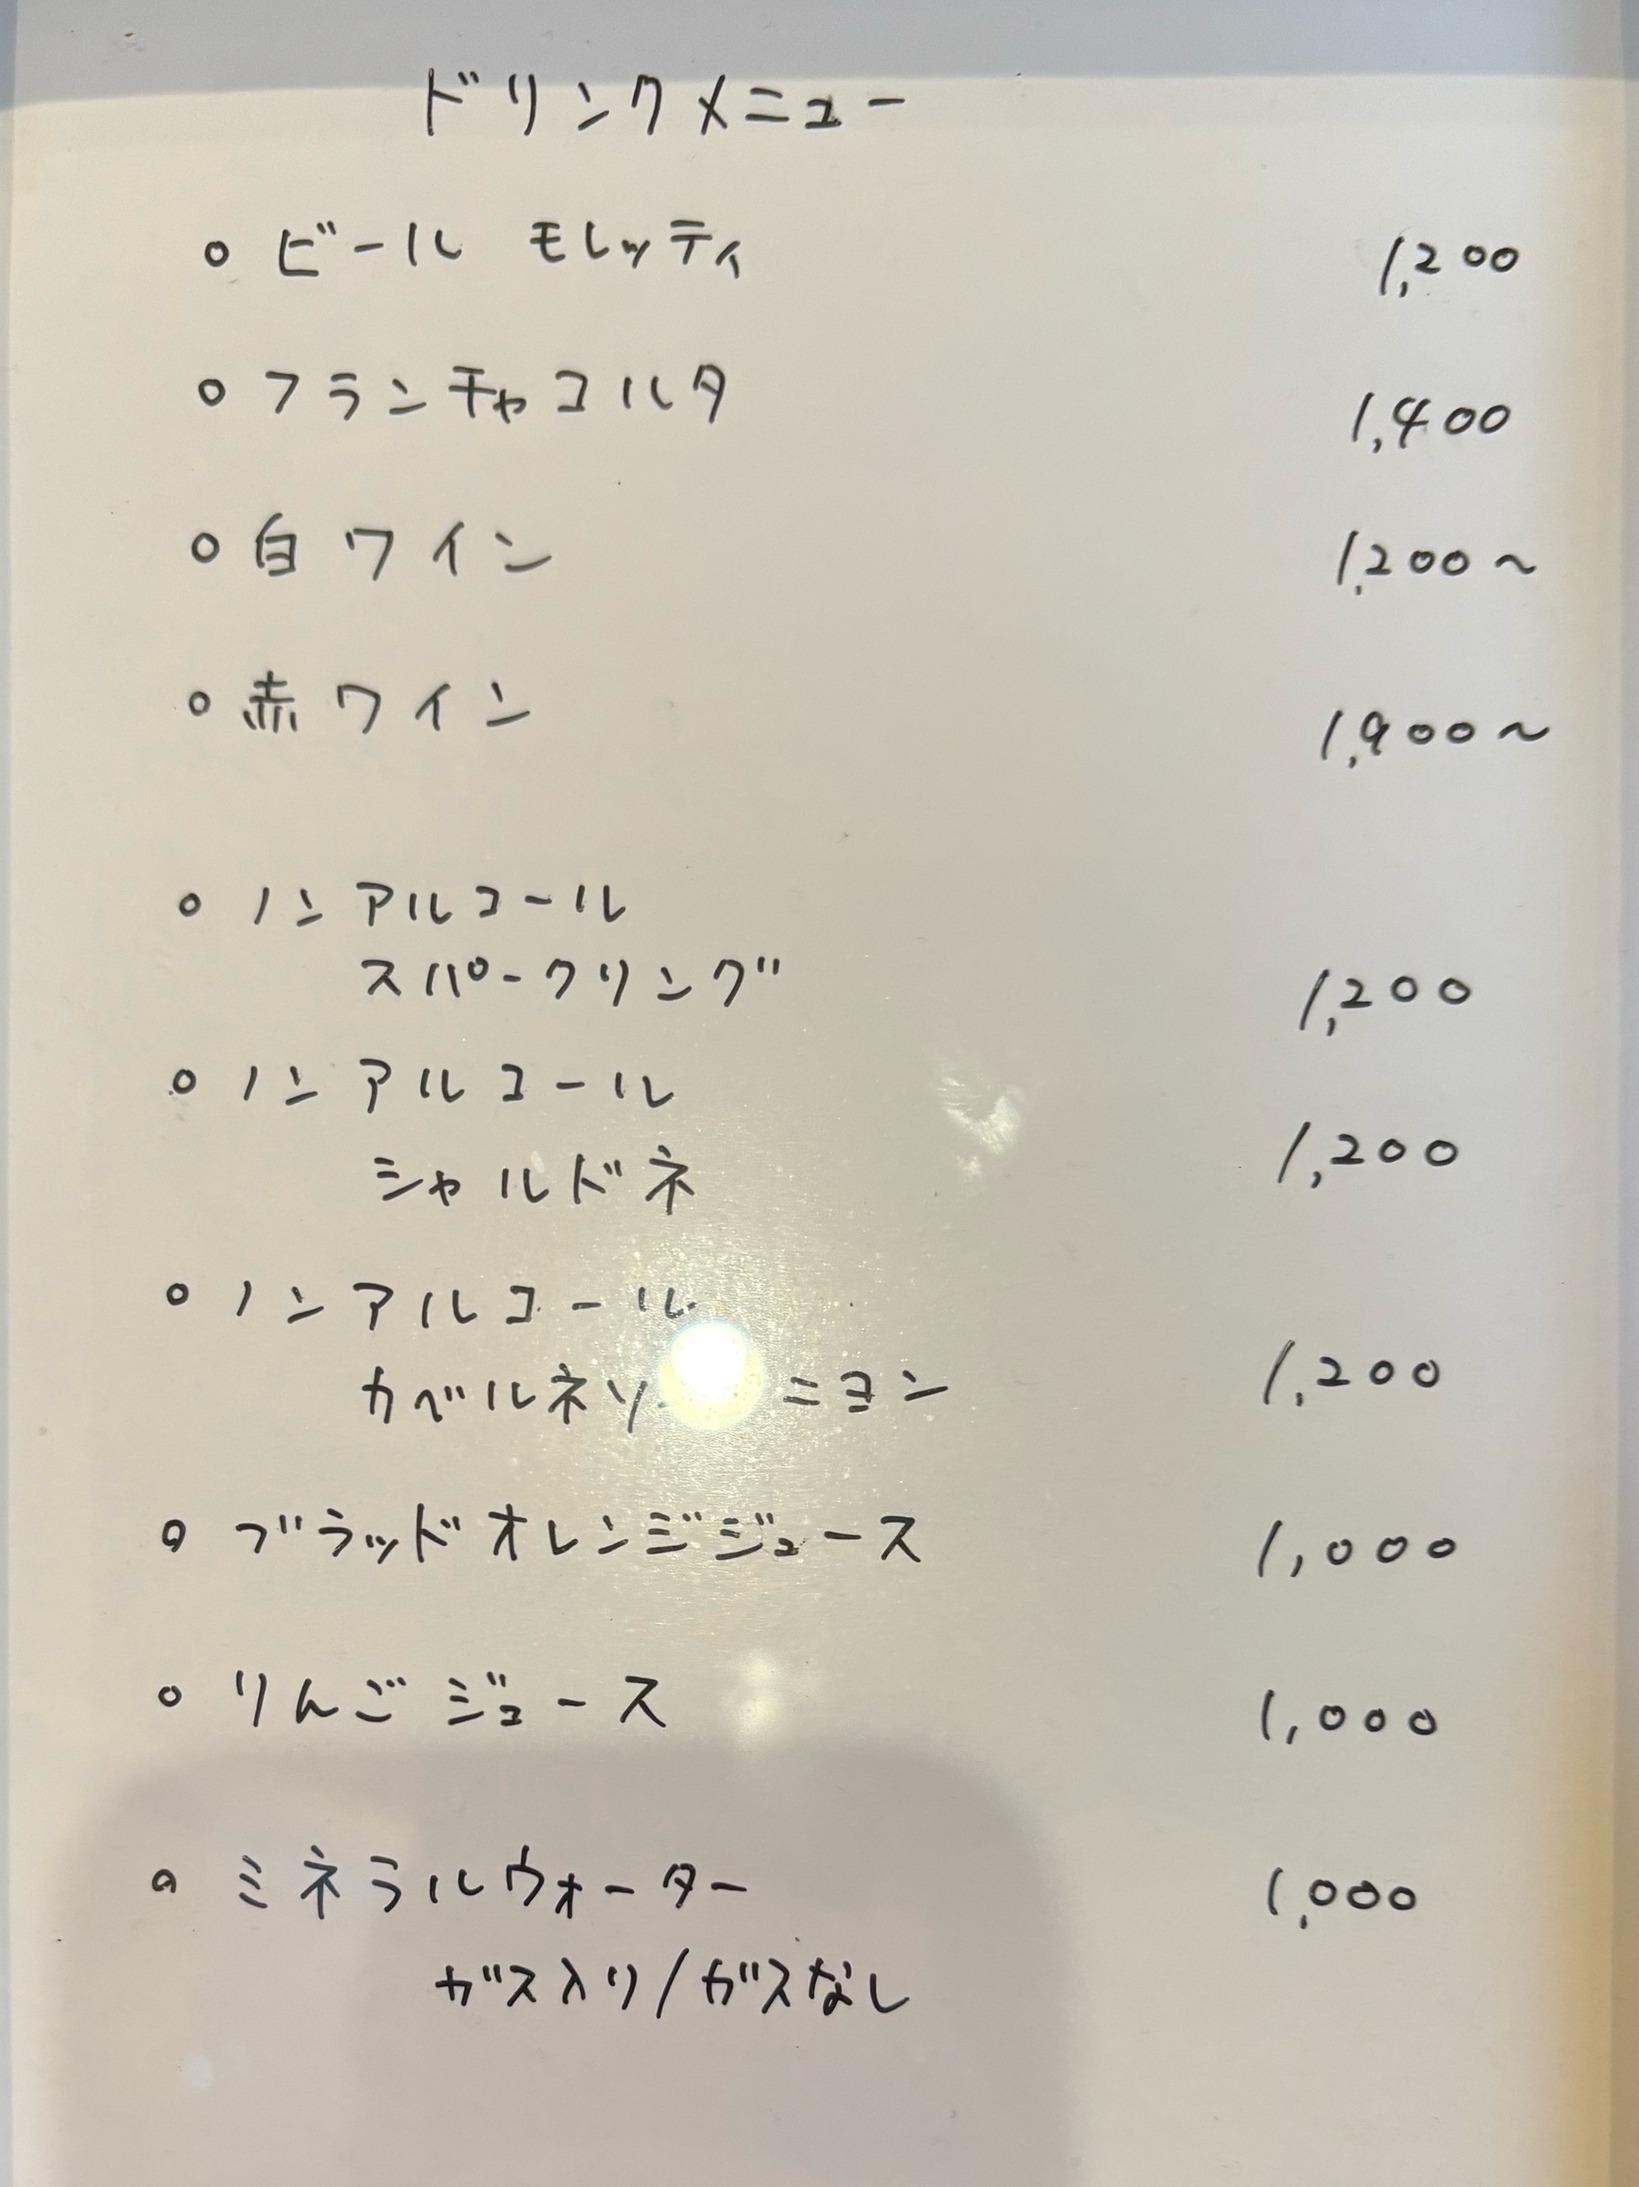 ドリンクメニュー
○ ビール モレッティ 1,200
○ フランチャコルタ 1,400
○ 白ワイン 1,200～
○ 赤ワイン 1,900～
○ ノンアルコール
スパークリング 1,200
○ ノンアルコール
シャルドネ 1,200
○ ノンアルコール
カベルネソ ニヨン 1,200
○ ブラッドオレンジジュース 1,000
○ りんごジュース 1,000
○ ミネラルウォーター 1,000
ガス入り/ガスなし